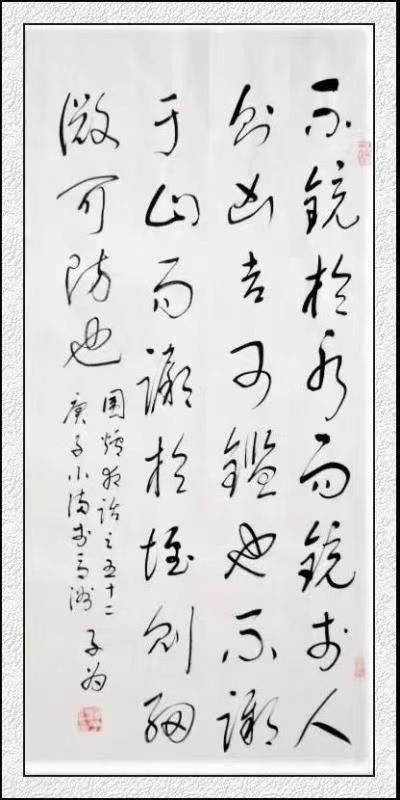 不鏡於水而鏡於人
則凶吉可鑑也不蹶
于山而蹶於垤則細
微可防也
圍爐夜話之五十二
庚子小滿於 子為